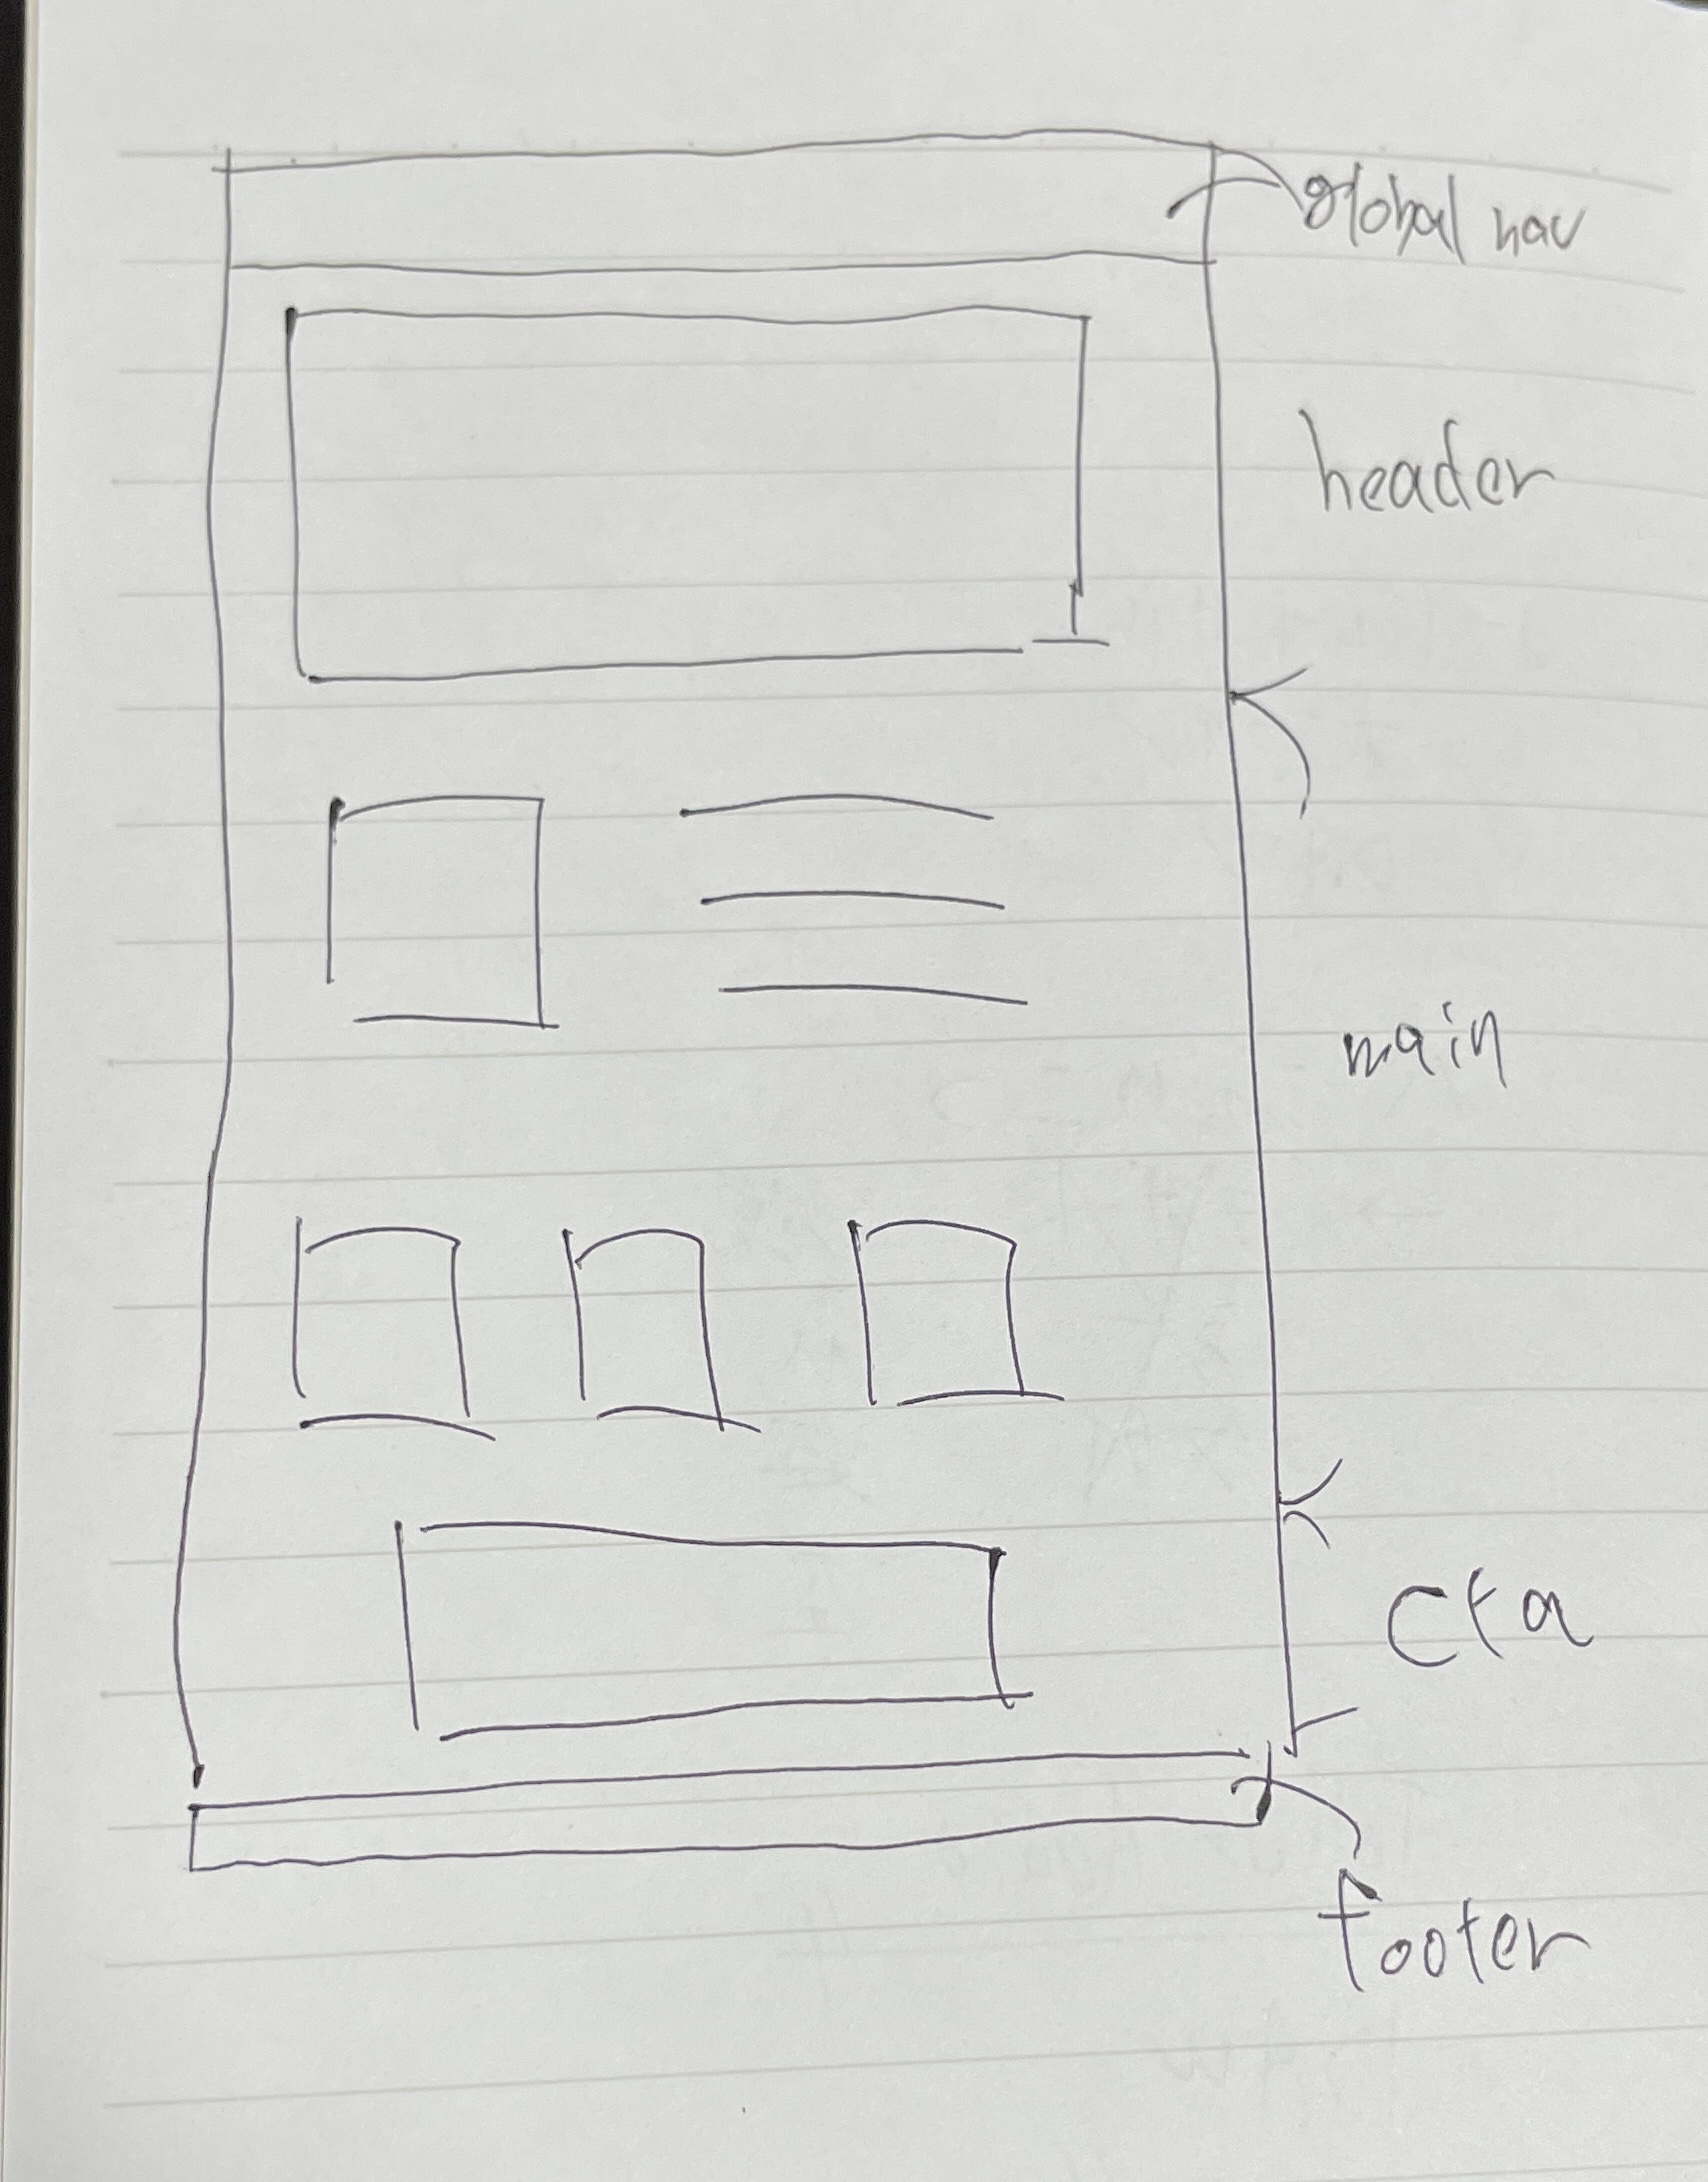 global nav
header
main
cta
footer